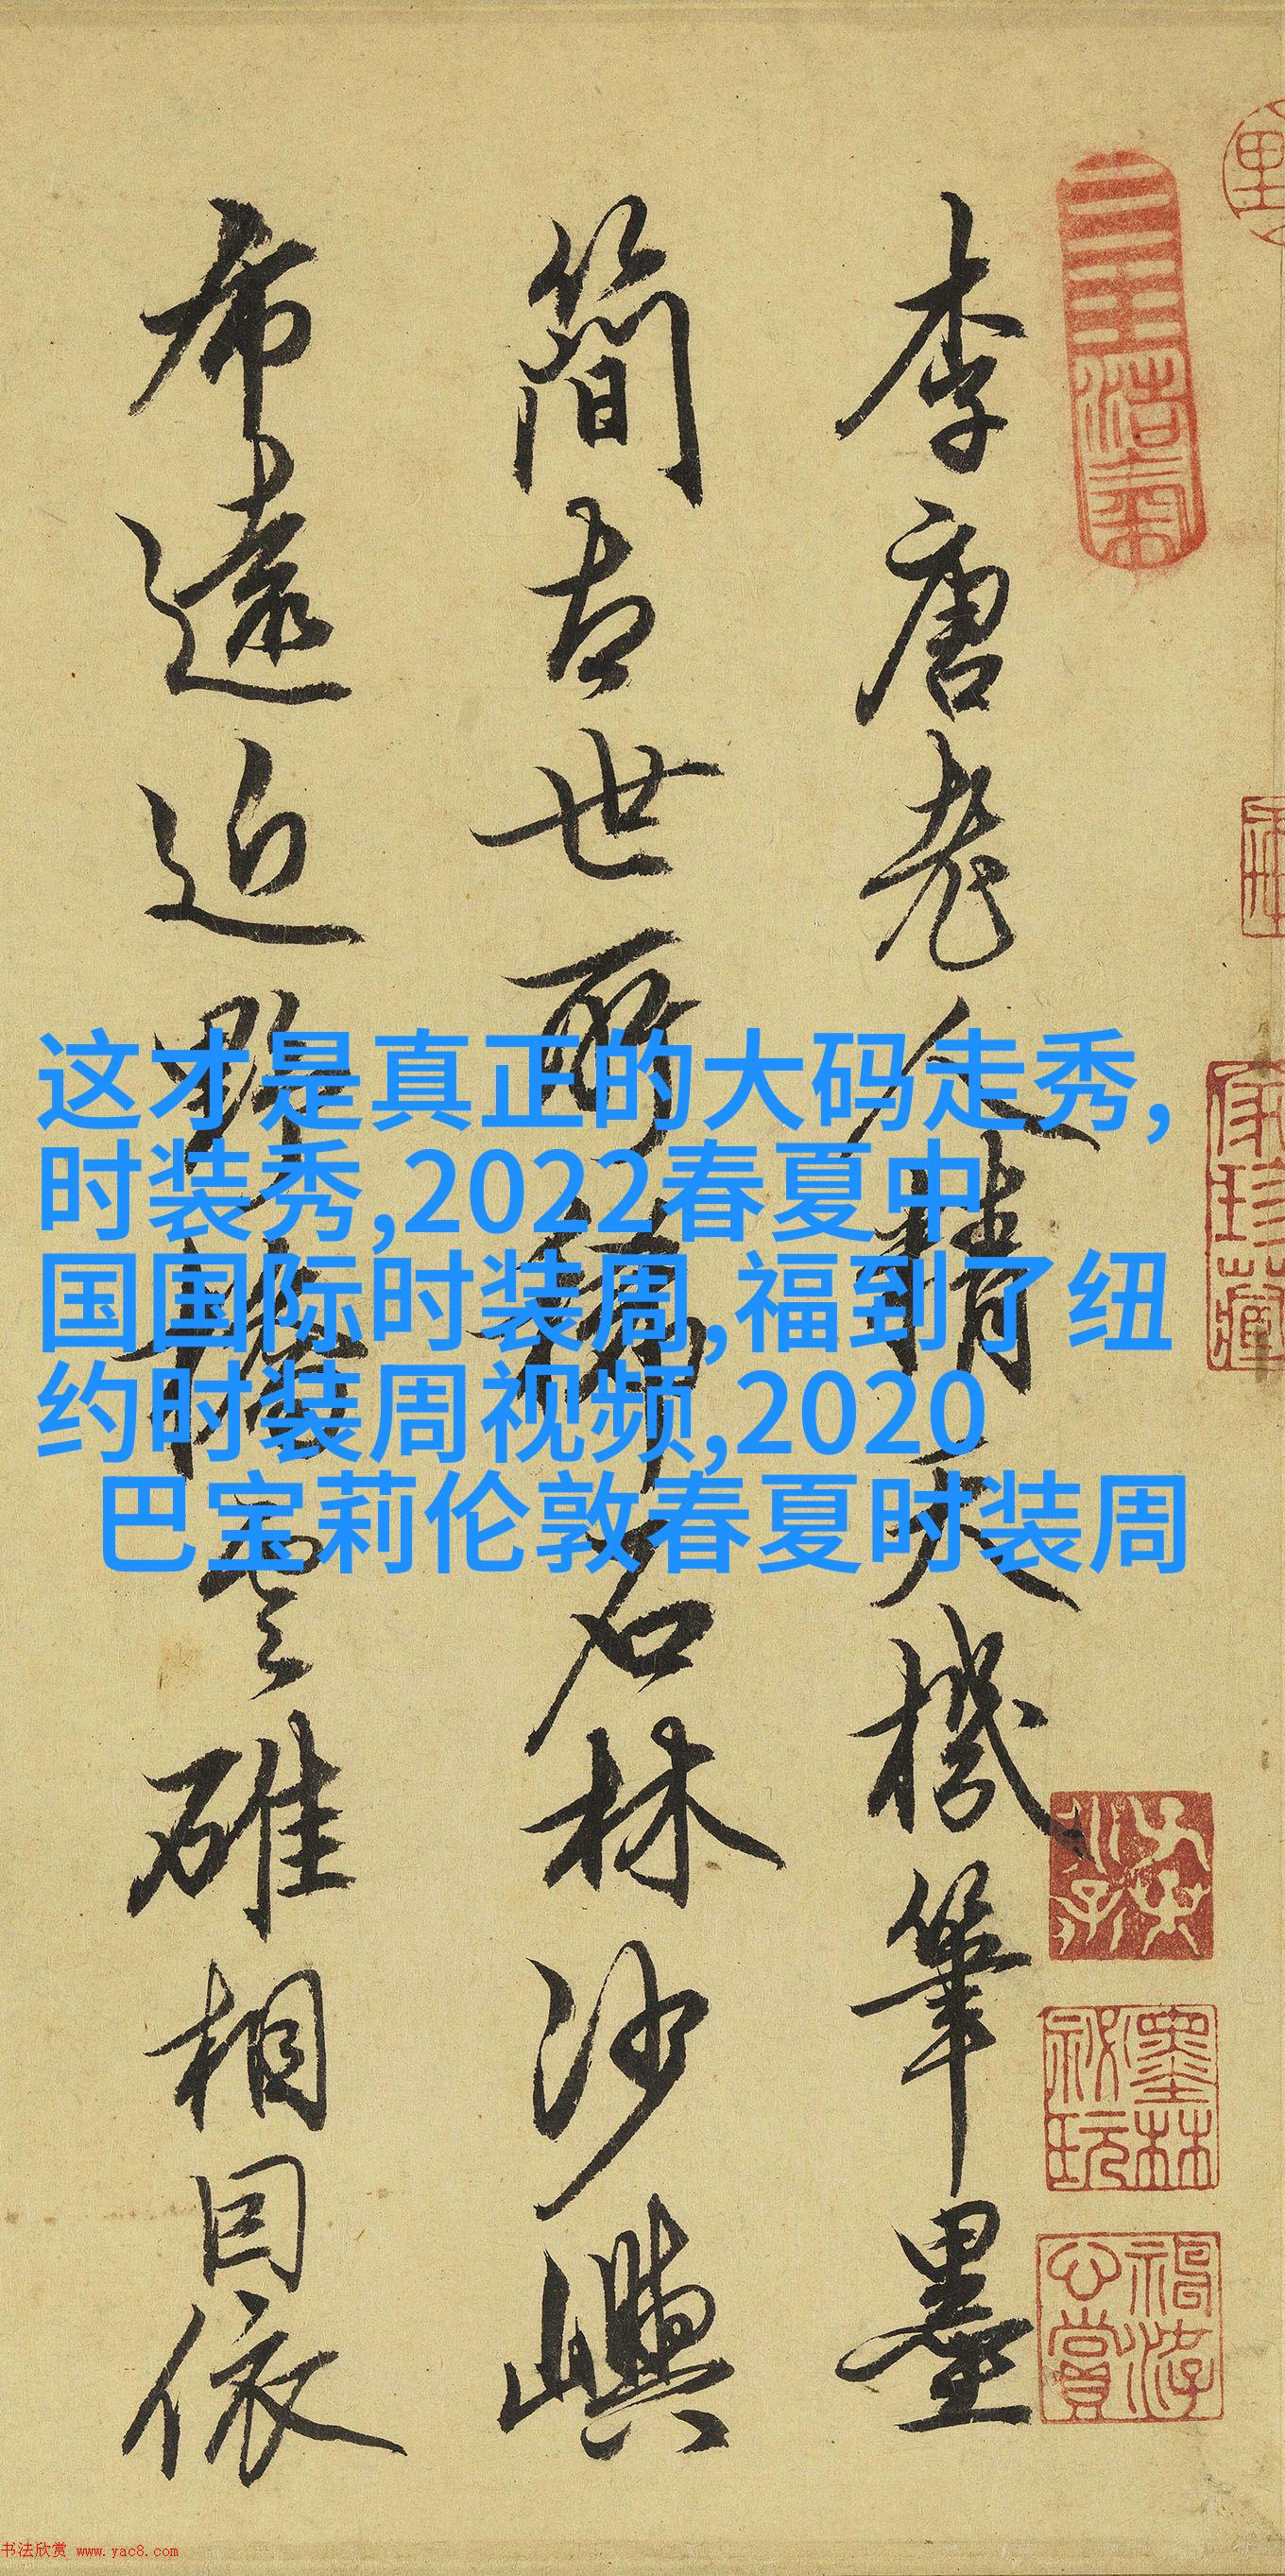 李唐老人精天機筆墨
簡古世所稀石林沙嶼
布遠近野橋雲碓相因依
这才是真正的大码走秀,
时装秀,2022春夏中
国国际时装周,福到了纽
约时装周视频,2020
巴宝莉伦敦春夏时装周
墨林秘玩
书法欣赏 www.yac8.com